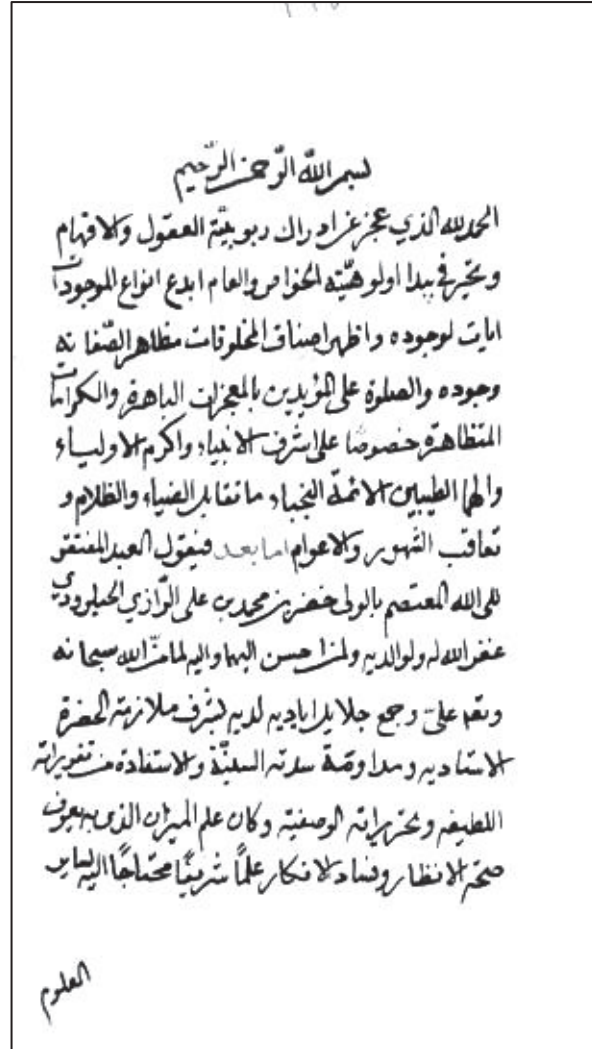 بسم الله الرّحمن الرّحيم
الحمد لله الذي عجز عن ادراك ربوبيّته العقول والافهام
وتحيّر في بيدا اولوهيّته الخواص والعام ابدع انواع الموجودات
ايات لوجوده واظهر اصناف المخلوقات مظاهر الصّفاته
وجوده والصلوة على المؤيدين بالمعجزات الباهرة والكرامات
المتظاهرة خصوصًا على اشرف الانبياء واكرم الاولياء
والهما الطيبين الائمة النجباء ما تقابل الضياء والظلام و
تعاقب الشهور والاعوام اما بعد فيقول العبد المفتقر
الى الله المعتصم بالولى خضر بن محمد بن على الرّازي الحبلرودي
غفر الله له ولوالديه ولمن احسن اليهما واليه لما منّ الله سبحانه
وتعالى علىّ وجمع جلايل اياديه لديه بشرف ملازمة الحضرة
الاستاديه ومداومة سدته السنيّة والاستفادة من تقريراته
اللطيفه وتحريراته الوصفيته وكان علم الميزان الذى به يعرف
صحّة الانظار وفساد الافكار علمًا شريفًا محتاجًا اليه لساير
العلوم